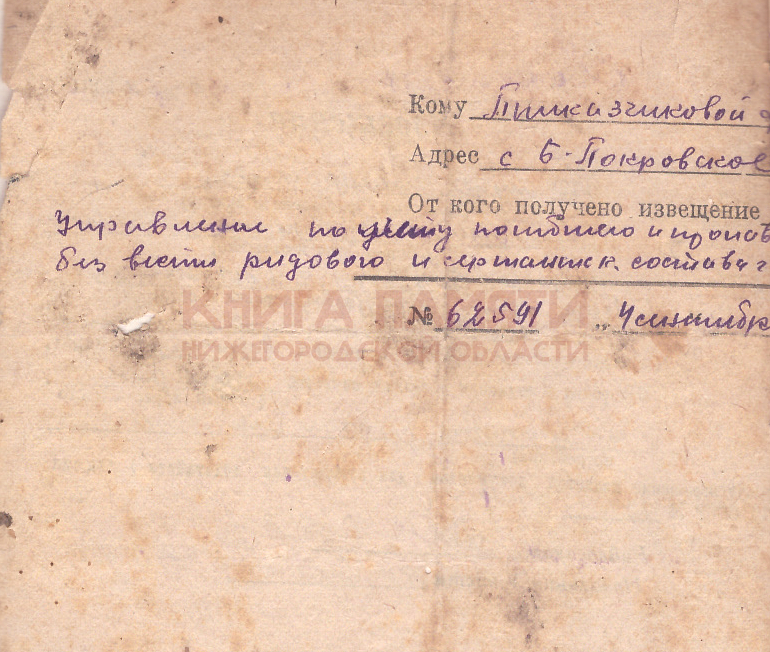 Кому Приказчиковой
Адрес с Б-Покровское
От кого получено извещение
Управление по учету погибшего и пропав
без вести рядового и сержантск. состава г
№ 62591 „4 сентября
КНИГА ПАМЯТИ
НИЖЕГОРОДСКОЙ ОБЛАСТИ